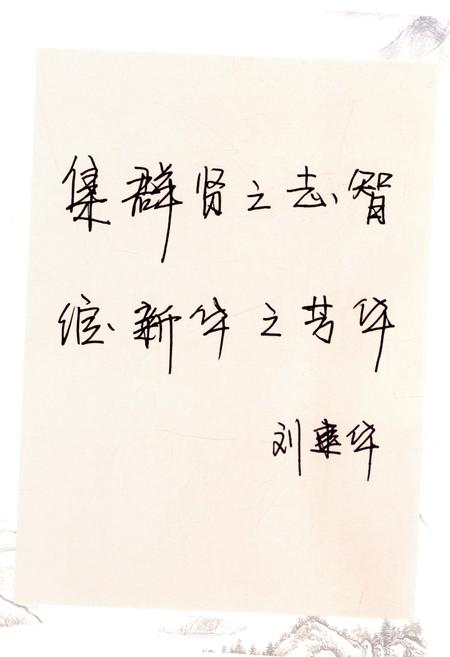 集群贤之志智
绽新华之芳华
刘乘华